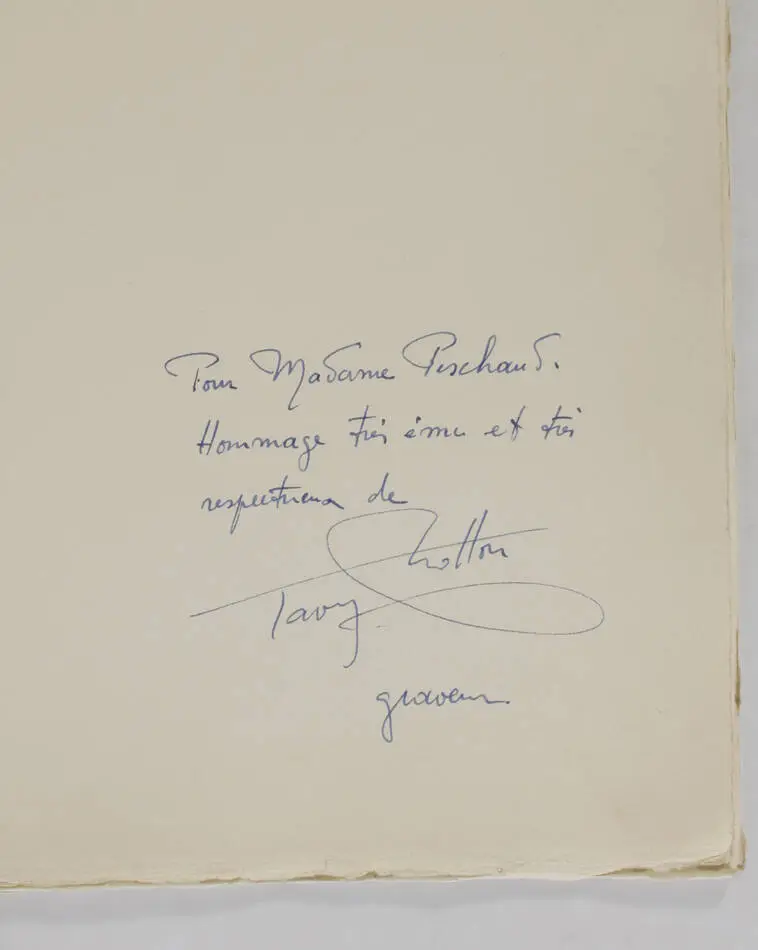 Pour Madame Peschaud.
Hommage très ému et très
respectueux de
Tavy Notton
graveur.